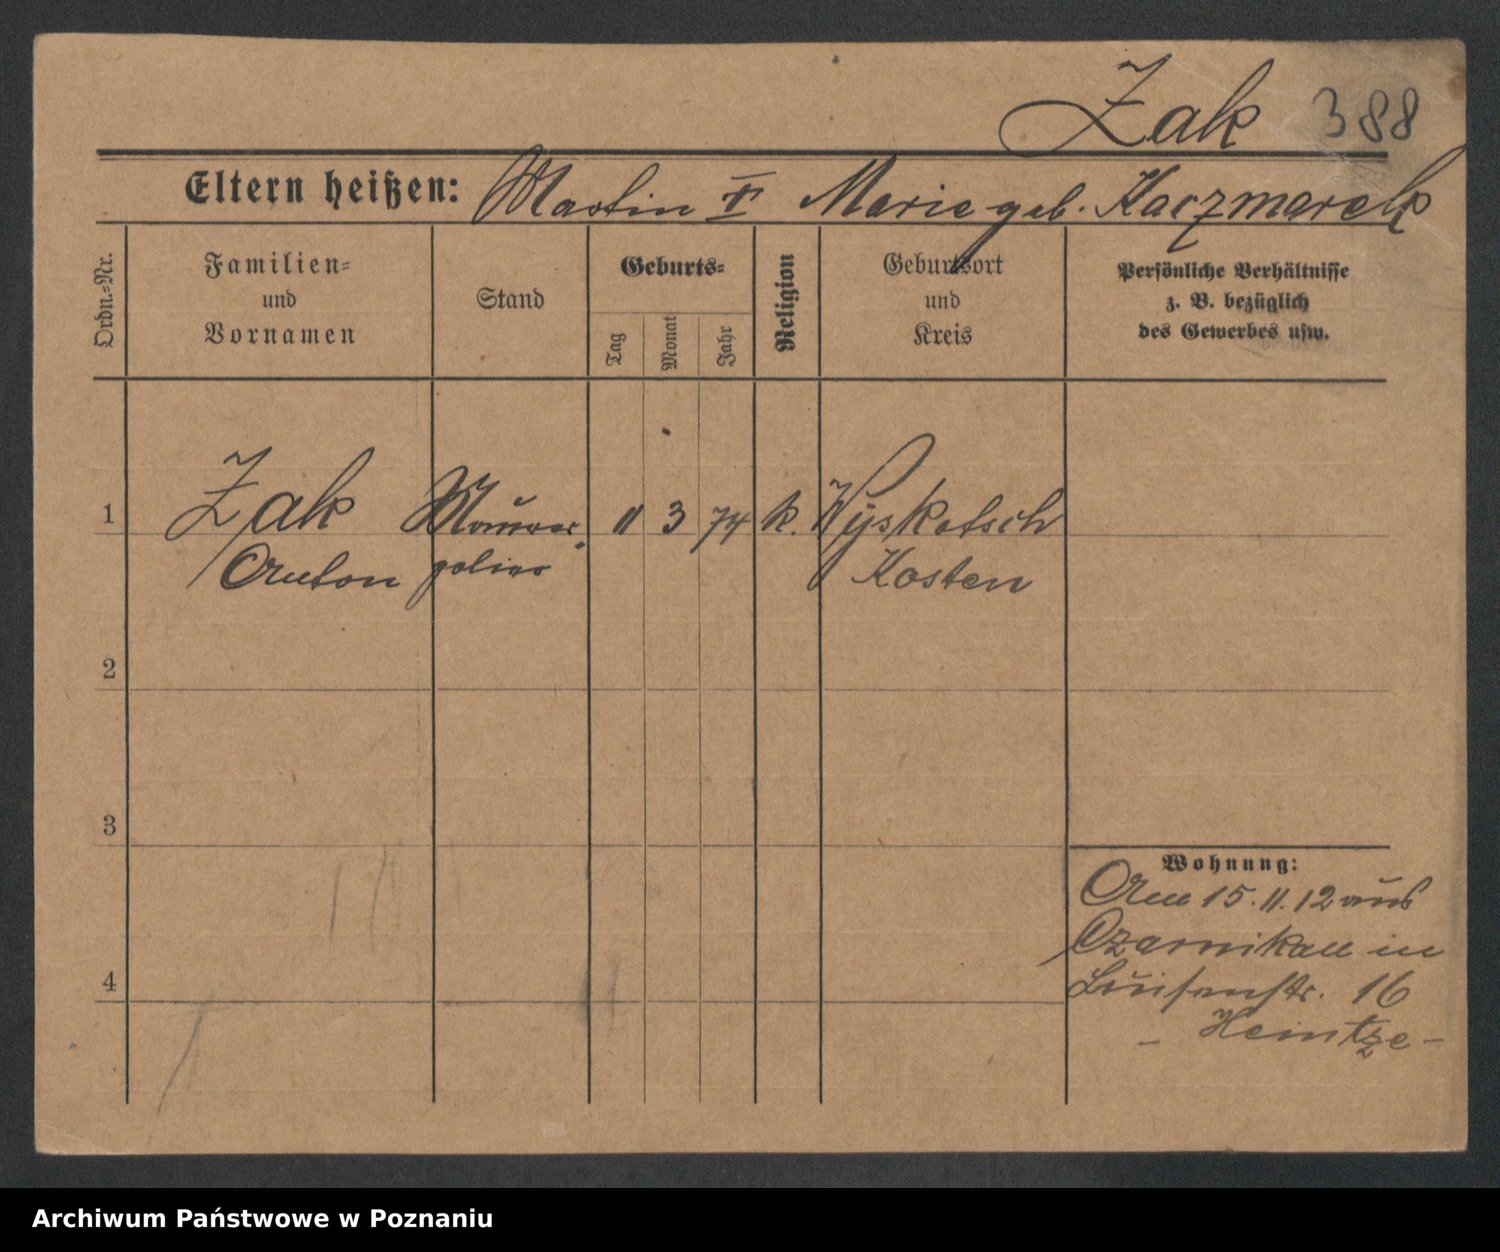 Zak 388
Eltern heißen: Martin u. Marie geb. Kaczmarek
Ordn.-Nr.
Familien-
und
Vornamen
Stand
Geburts-
Tag
Monat
Jahr
Religion
Geburtsort
und
Kreis
Persönliche Verhältnisse
z. B. bezüglich
des Gewerbes usw.
1 Zak Maurer- 11 3 74 k. Wyskotsch
Anton polier Kosten
2
3
4
Wohnung:
Am 15.11.12 aus
Czarnikau in
Luisenstr. 16
- Heintze -
Archiwum Państwowe w Poznaniu